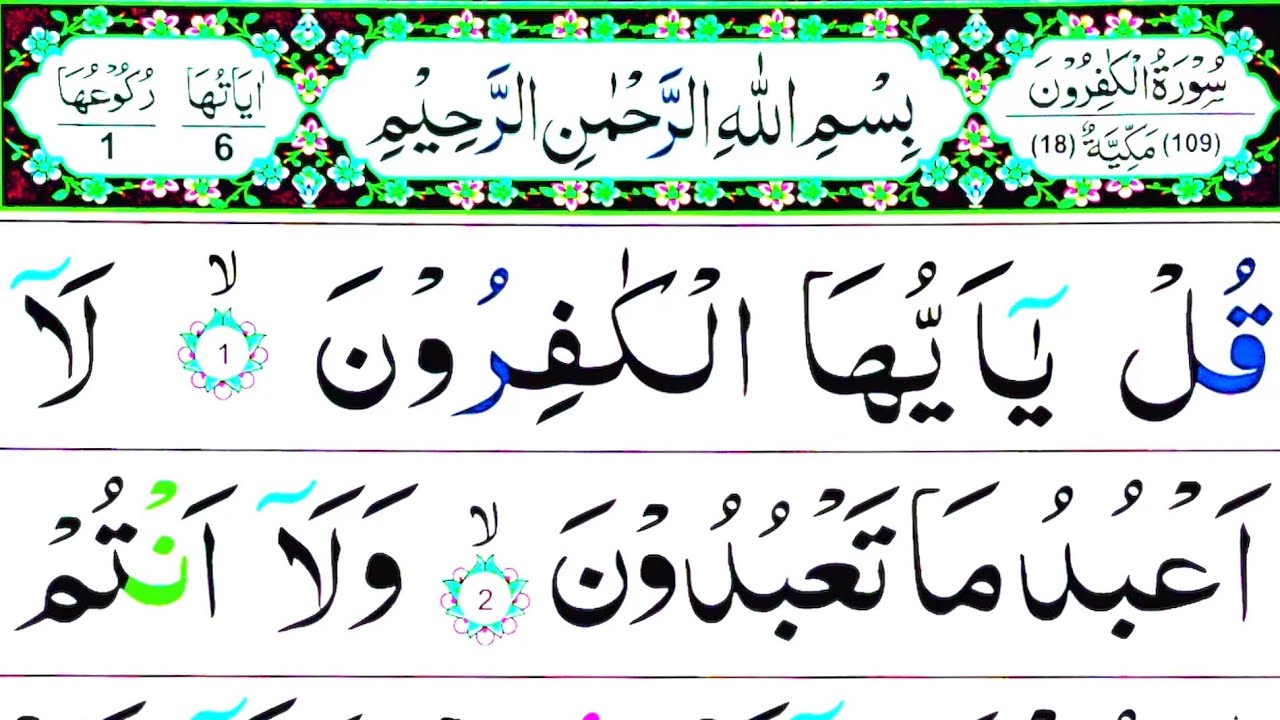 سُوْرَةُ الْكٰفِرُوْنَ
(109) مَكِّيَّةٌ (18)
بِسْمِ اللّٰهِ الرَّحْمٰنِ الرَّحِيْمِ
اٰيَاتُهَا 6
رُكُوْعُهَا 1
قُلْ يٰٓاَيُّهَا الْكٰفِرُوْنَ ۙ 1 لَآ
اَعْبُدُ مَا تَعْبُدُوْنَ ۙ 2 وَلَآ اَنْتُمْ